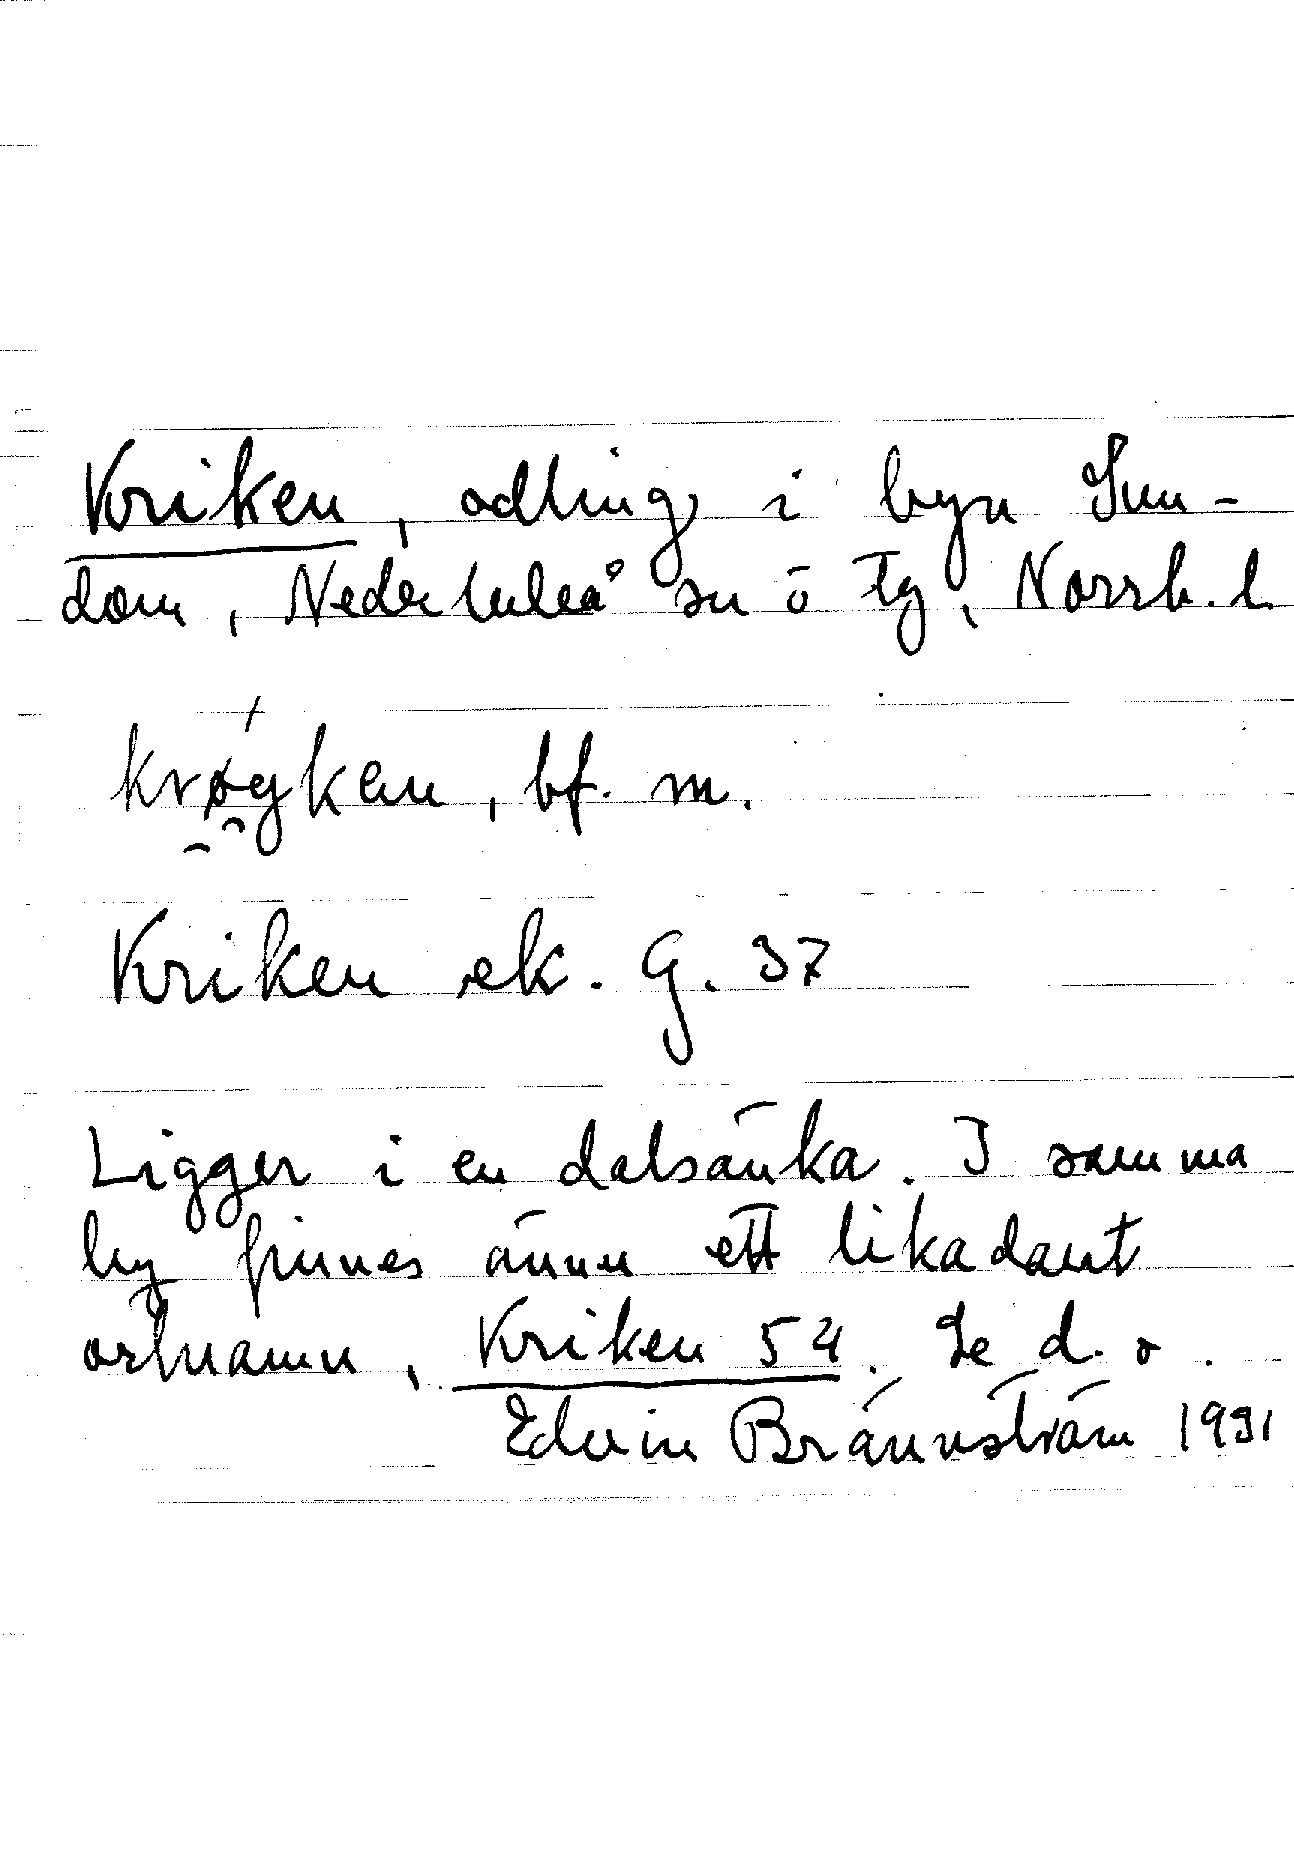 Kriken, odling i byn Sun-
dom, Nederluleå sn o tg, Norrb. l.
krøyken, bf. m.
Kriken ek. G. 37
Ligger i en dalsänka. I samma
by finnes ännu ett likadant
ortnamn, Kriken 54. Se d. o.
Edvin Brännström 1991